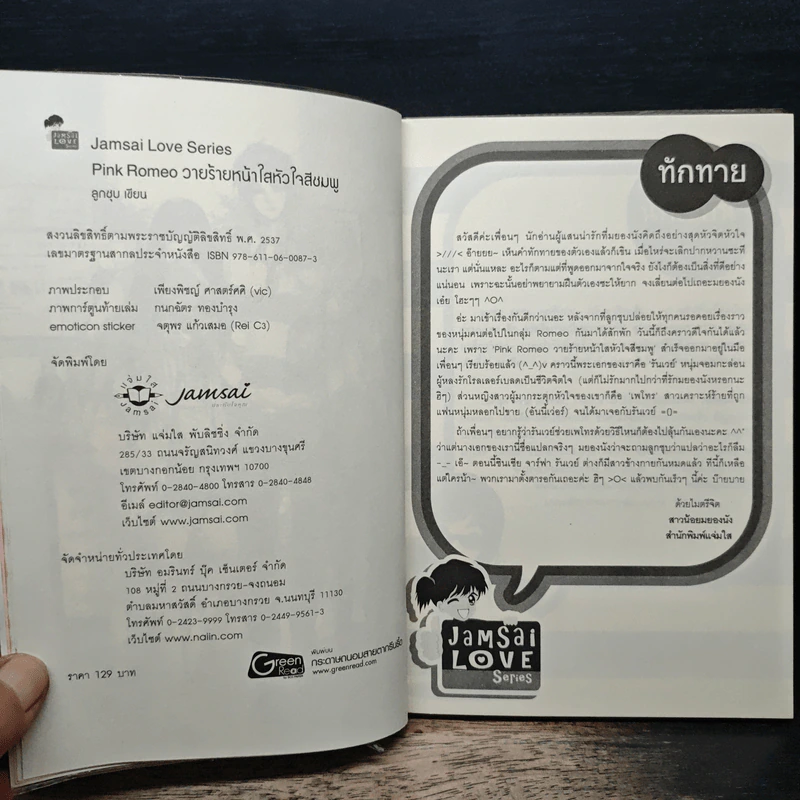 JAMSAI
LOVE
Series
Jamsai Love Series
Pink Romeo วายร้ายหน้าใสหัวใจสีชมพู
ลูกชุบ เขียน
สงวนลิขสิทธิ์ตามพระราชบัญญัติลิขสิทธิ์ พ.ศ. 2537
เลขมาตรฐานสากลประจำหนังสือ ISBN 978-611-06-0087-3
ภาพประกอบ เพียงพิชญ์ ศาสตร์ศศิ (vic)
ภาพการ์ตูนท้ายเล่ม กนกฉัตร ทองบำรุง
emoticon sticker จตุพร แก้วเสมอ (Rei C3)
จัดพิมพ์โดย
แจ่มใส
JAMSAI
Jamsai
บริษัท แจ่มใส พับลิชชิ่ง จำกัด
285/33 ถนนจรัญสนิทวงศ์ แขวงบางขุนศรี
เขตบางกอกน้อย กรุงเทพฯ 10700
โทรศัพท์ 0-2840-4800 โทรสาร 0-2840-4848
อีเมล์ editor@jamsai.com
เว็บไซต์ www.jamsai.com
จัดจำหน่ายทั่วประเทศโดย
บริษัท อมรินทร์ บุ๊ค เซ็นเตอร์ จำกัด
108 หมู่ที่ 2 ถนนบางกรวย-จงถนอม
ตำบลมหาสวัสดิ์ อำเภอบางกรวย จ.นนทบุรี 11130
โทรศัพท์ 0-2423-9999 โทรสาร 0-2449-9561-3
เว็บไซต์ www.naiin.com
ราคา 129 บาท
Green
Read
พิมพ์บน
กระดาษถนอมสายตากรีนรี้ด
www.greenread.com
ทักทาย
สวัสดีค่ะเพื่อนๆ นักอ่านผู้แสนน่ารักที่มยองนังคิดถึงอย่างสุดหัวจิตหัวใจ
>///< อ๊ายยย~ เห็นคำทักทายของตัวเองแล้วก็เขิน เมื่อไหร่จะเลิกปากหวานซะที
นะเรา แต่นั่นแหละ อะไรก็ตามแต่ที่พูดออกมาจากใจจริง ยังไงก็ต้องเป็นสิ่งที่ดีอย่าง
แน่นอน เพราะฉะนั้นอย่าพยายามฝืนตัวเองซะให้ยาก จงเลี่ยนต่อไปเถอะมยองนัง
เอ๋ย โฮะๆๆ ^O^
อ่ะ มาเข้าเรื่องกันดีกว่าเนอะ หลังจากที่ลูกชุบปล่อยให้ทุกคนรอคอยเรื่องราว
ของหนุ่มคนต่อไปในกลุ่ม Romeo กันมาได้สักพัก วันนี้ก็ถึงคราวดีใจกันได้แล้ว
นะคะ เพราะ 'Pink Romeo วายร้ายหน้าใสหัวใจสีชมพู' สำเร็จออกมาอยู่ในมือ
เพื่อนๆ เรียบร้อยแล้ว (^_^)v คราวนี้พระเอกของเราคือ 'รันเวย์' หนุ่มจอมกะล่อน
ผู้หลงรักโรลเลอร์เบลดเป็นชีวิตจิตใจ (แต่ก็ไม่รักมากไปกว่าที่รักมยองนังหรอกนะ
ฮิๆ) ส่วนหญิงสาวผู้มากระตุกหัวใจของเขาก็คือ 'เพไทร' สาวเคราะห์ร้ายที่ถูก
แฟนหนุ่มหลอกไปขาย (อันนี้เว่อร์) จนได้มาเจอกับรันเวย์ =O=
ถ้าเพื่อนๆ อยากรู้ว่ารันเวย์ช่วยเพไทรด้วยวิธีไหนก็ต้องไปลุ้นกันเองนะคะ ^^"
ว่าแต่นางเอกของเรานี่ชื่อแปลกจริงๆ มยองนังว่าจะถามลูกชุบว่าแปลว่าอะไรก็ลืม
-_- เอ้~ ตอนนี้ซินเซีย จาร์ฟา รันเวย์ ต่างก็มีสาวข้างกายกันหมดแล้ว ทีนี้ก็เหลือ
แต่ใครน้า~ พวกเรามาตั้งตารอกันเถอะค่ะ ฮิๆ >O< แล้วพบกันเร็วๆ นี้ค่ะ บ๊ายบาย
ด้วยไมตรีจิต
สาวน้อยมยองนัง
สำนักพิมพ์แจ่มใส
JAMSAI
LOVE
Series